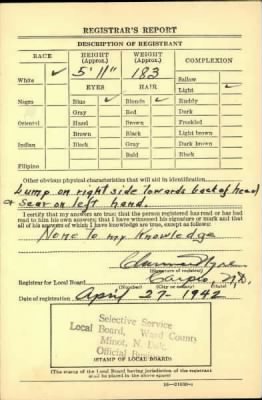 REGISTRAR'S REPORT
DESCRIPTION OF REGISTRANT
RACE HEIGHT (Approx.) WEIGHT (Approx.) COMPLEXION
White ✓ 5' 11" 183 Sallow
EYES HAIR Light ✓
Negro Blue ✓ Blonde ✓ Ruddy
Gray Red Dark
Oriental Hazel Brown Freckled
Brown Black Light brown
Indian Black Gray Dark brown
Bald Black
Filipino
Other obvious physical characteristics that will aid in identification
Lump on right side towards back of head
& Scar on left hand.
I certify that my answers are true; that the person registered has read or has had
read to him his own answers; that I have witnessed his signature or mark and that
all of his answers of which I have knowledge are true, except as follows:
None to my Knowledge
(Signature of registrar)
Registrar for Local Board Carpio N.D.
Date of registration April 27-1942
Selective Service
Local Board, Ward County
Minot, N. Dak.
Official Business
(STAMP OF LOCAL BOARD)
(The stamp of the Local Board having jurisdiction of the registrant
shall be placed in the above space.)